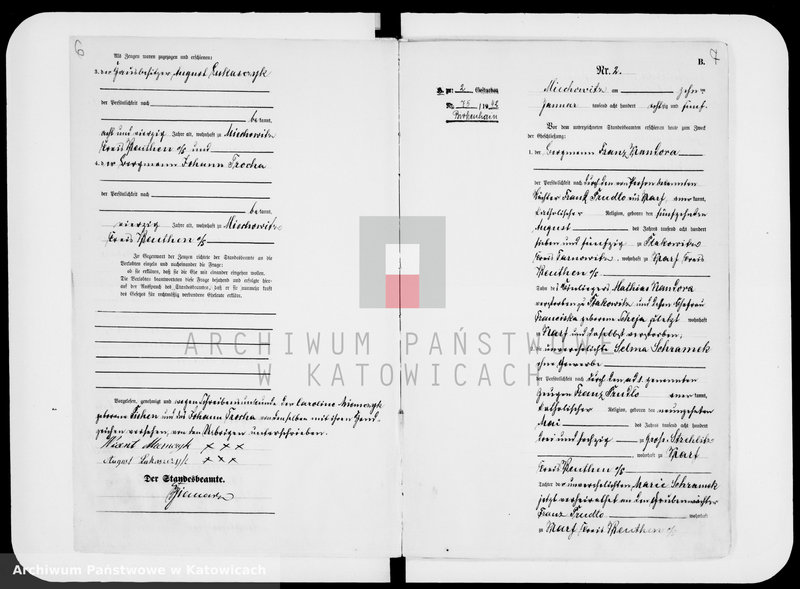 6
Als Zeugen waren zugezogen und erschienen:
3. der Hausbesitzer August Lukasczyk
der Persönlichkeit nach
be kannt,
acht und vierzig Jahre alt, wohnhaft zu Miechowitz
Kreis Beuthen o/s und
4. der Bergmann Johann Trocha
der Persönlichkeit nach
be kannt,
vierzig Jahre alt, wohnhaft zu Miechowitz
Kreis Beuthen o/s
In Gegenwart der Zeugen richtete der Standesbeamte an die
Verlobten einzeln und nacheinander die Frage:
ob sie erklären, daß sie die Ehe mit einander eingehen wollen.
Die Verlobten beantworteten diese Frage bejahend und erfolgte hier-
auf der Ausspruch des Standesbeamten, daß er sie nunmehr kraft
des Gesetzes für rechtmäßig verbundene Eheleute erkläre.
Vorgelesen, genehmigt und wegen Schreibensunkunde der Caroline
geborene und des Johann Trocha von denselben mit ihren Hand-
zeichen versehen, von den Uebrigen unterschrieben.
+ + +
August Lukasczyk + + +
Der Standesbeamte.
B.
7
Nr. 2.
Miechowitz am zehn ten
Januar tausend acht hundert achtzig und fünf.
Vor dem unterzeichneten Standesbeamten erschienen heute zum Zweck
der Eheschließung:
1. der Bergmann Franz Kandora
der Persönlichkeit nach durch den von Person bekannten
Wächter Franz Trudlo aus Karf aner kannt,
katholischer Religion, geboren den fünfzehnten
August des Jahres tausend acht hundert
sieben und fünfzig zu Ptakowitz
Kreis Tarnowitz, wohnhaft zu Karf Kreis
Beuthen o/s
Sohn des Mathias Kandora
verstorben zu Ptakowitz und dessen Ehefrau
Franciska geborene zuletzt wohnhaft
zu Karf und daselbst verstorben;
die unverehelichte Selma Schramek
ohne Gewerbe
der Persönlichkeit nach durch den ad 1. genannten
Zeugen Franz Trudlo aner kannt,
katholischer Religion, geboren den neunzehnten
Mai des Jahres tausend acht hundert
drei und sechzig zu Groß-Strehlitz
wohnhaft zu Karf
Kreis Beuthen o/s
Tochter der unverehelichten Marie Schramek
jetzt verheirathet an den Grubenwächter
Franz Trudlo wohnhaft
zu Karf Kreis Beuthen o/s
ARCHIWUM PAŃSTWOWE
W KATOWICACH
Archiwum Państwowe w Katowicach